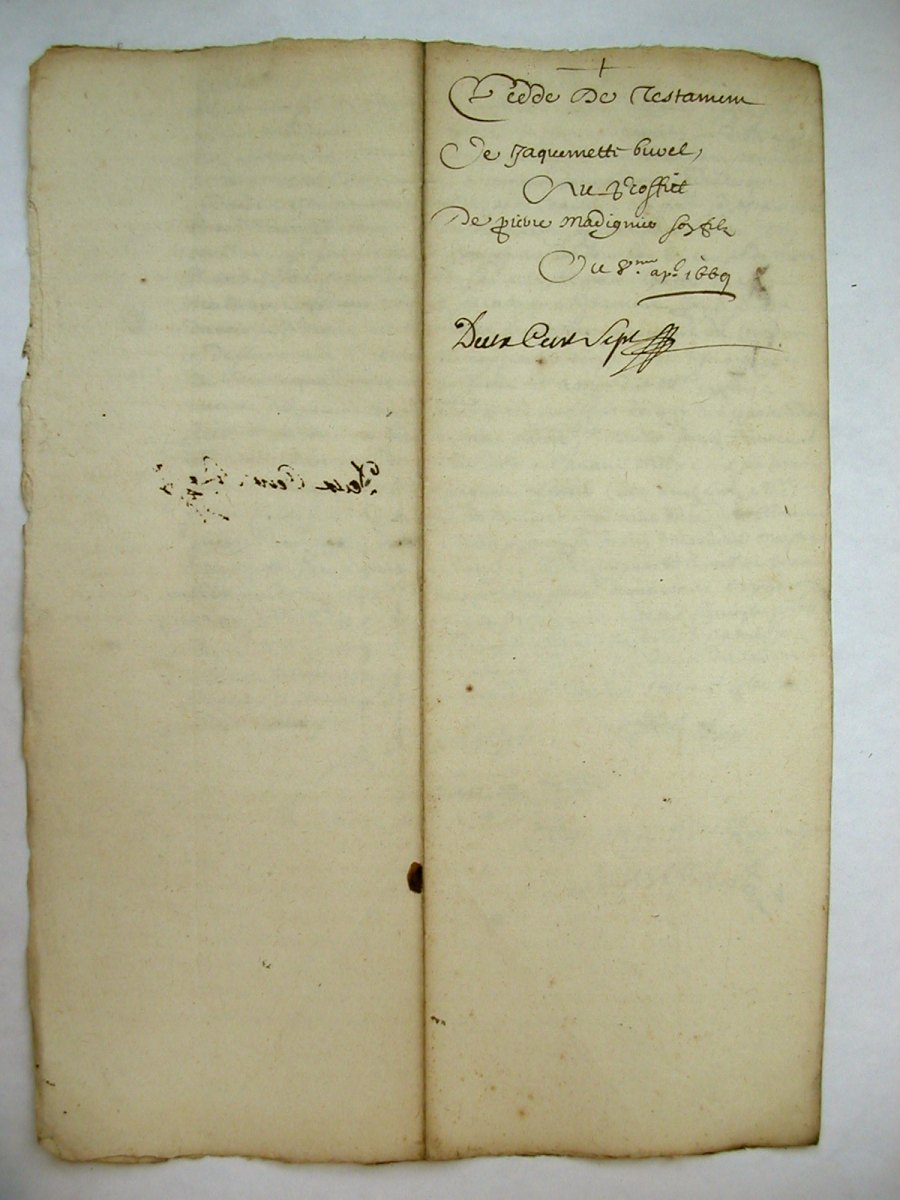 +
Cedde De Testament
De Jaquemette buvel,
Au Proffict
De pierre Madignier son filz
Du 8.me apl. 1669
Deux Cent Sept